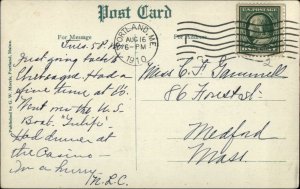 Post Card
For Message
For Address
PORTLAND, ME.
AUG 16
6-PM
1910
U.S. POSTAGE
Tues. 5 P.M.
Just going back to
Had a
fine time at
Went on the U.S.
Boat. "Tulip"
Had dinner at
the Casino—
In a hurry
M.L.C.
Miss C. F. Gammell
86 Forest St.
Medford
Mass.
Published by G. W. Morris, Portland, Maine.